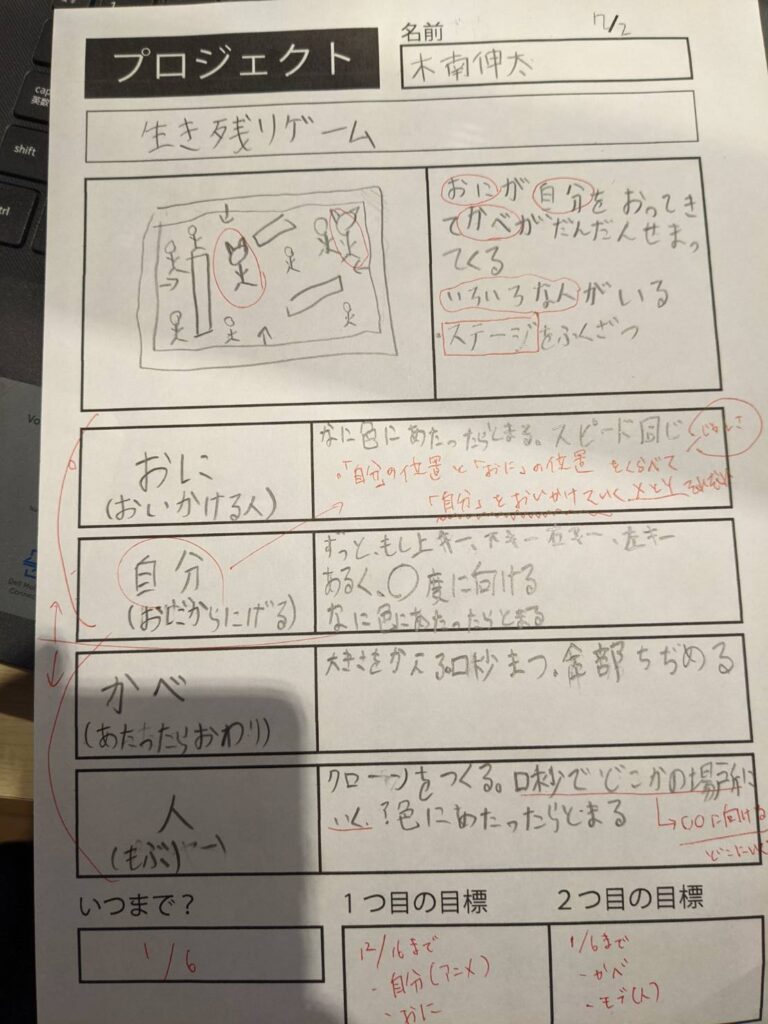 7/2
名前
プロジェクト
木南伸太
生き残りゲーム
おにが自分をおってき
てかべがだんだんせまっ
てくる
いろいろな人がいる
・ステージをふくざつ
おに
(おいかける人)
なに色にあたったらとまる。スピード同じ
・「自分」の位置と「おに」の位置をくらべて
「自分」をおいかけていく XとY
自分
(おにからにげる)
ずっと、もし上キー、下キー 右キー、左キー
あるく、〇度に向ける
なに色にあたったらとまる
かべ
(あたったらおわり)
大きさをかえる。口秒まつ、全部ちぢめる
人
クローンをつくる。口秒でどこかの場所に
いく、?色にあたったらとまる
○○に向ける
いつまで?
1/6
1つ目の目標
12/16まで
・自分(アニメ)
・おに
2つ目の目標
1/6まで
・かべ
・モブ(人)
caps
英数
shift